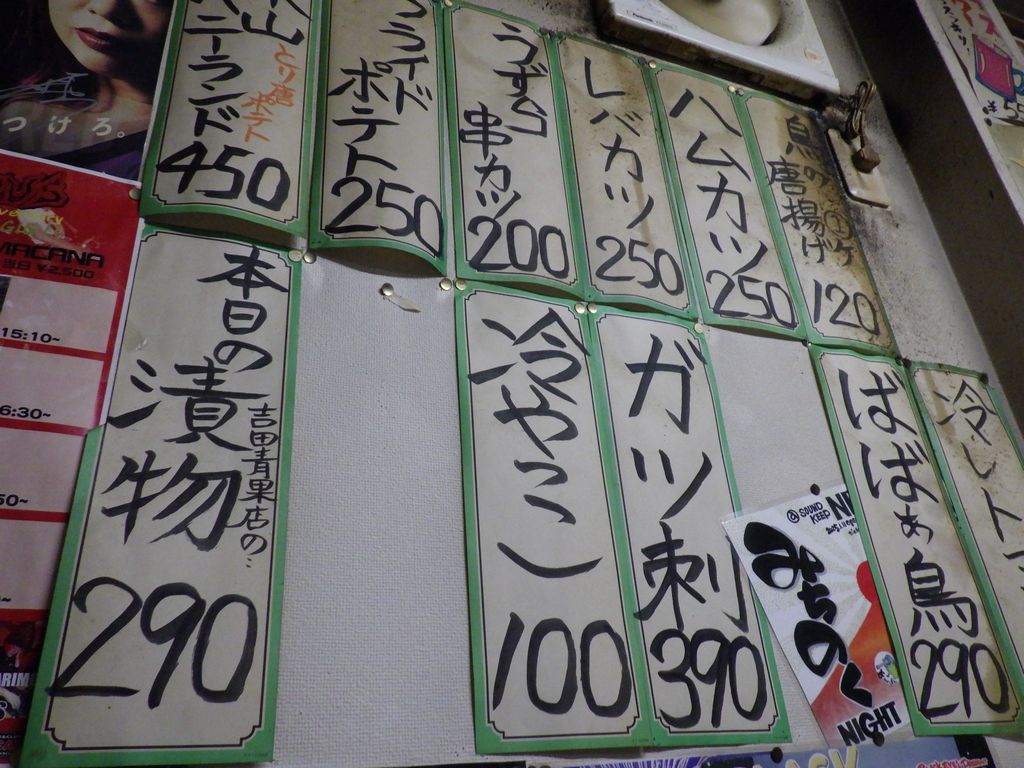 山
ハニーランド
とり唐
ポテト
450
フライド
ポテト
250
うずら
串カツ
200
レバカツ
250
ハムカツ
250
鳥の
唐揚げ
①ケ
120
本日の
漬物
吉田青果店の
290
冷やっこ
100
ガツ刺
390
ばばぁ鳥
290
冷しトマ
つけろ。
MACANA
当日 ¥2,500
15:10~
6:30~
50~
SOUND
KEEP
みちのく
NIGHT